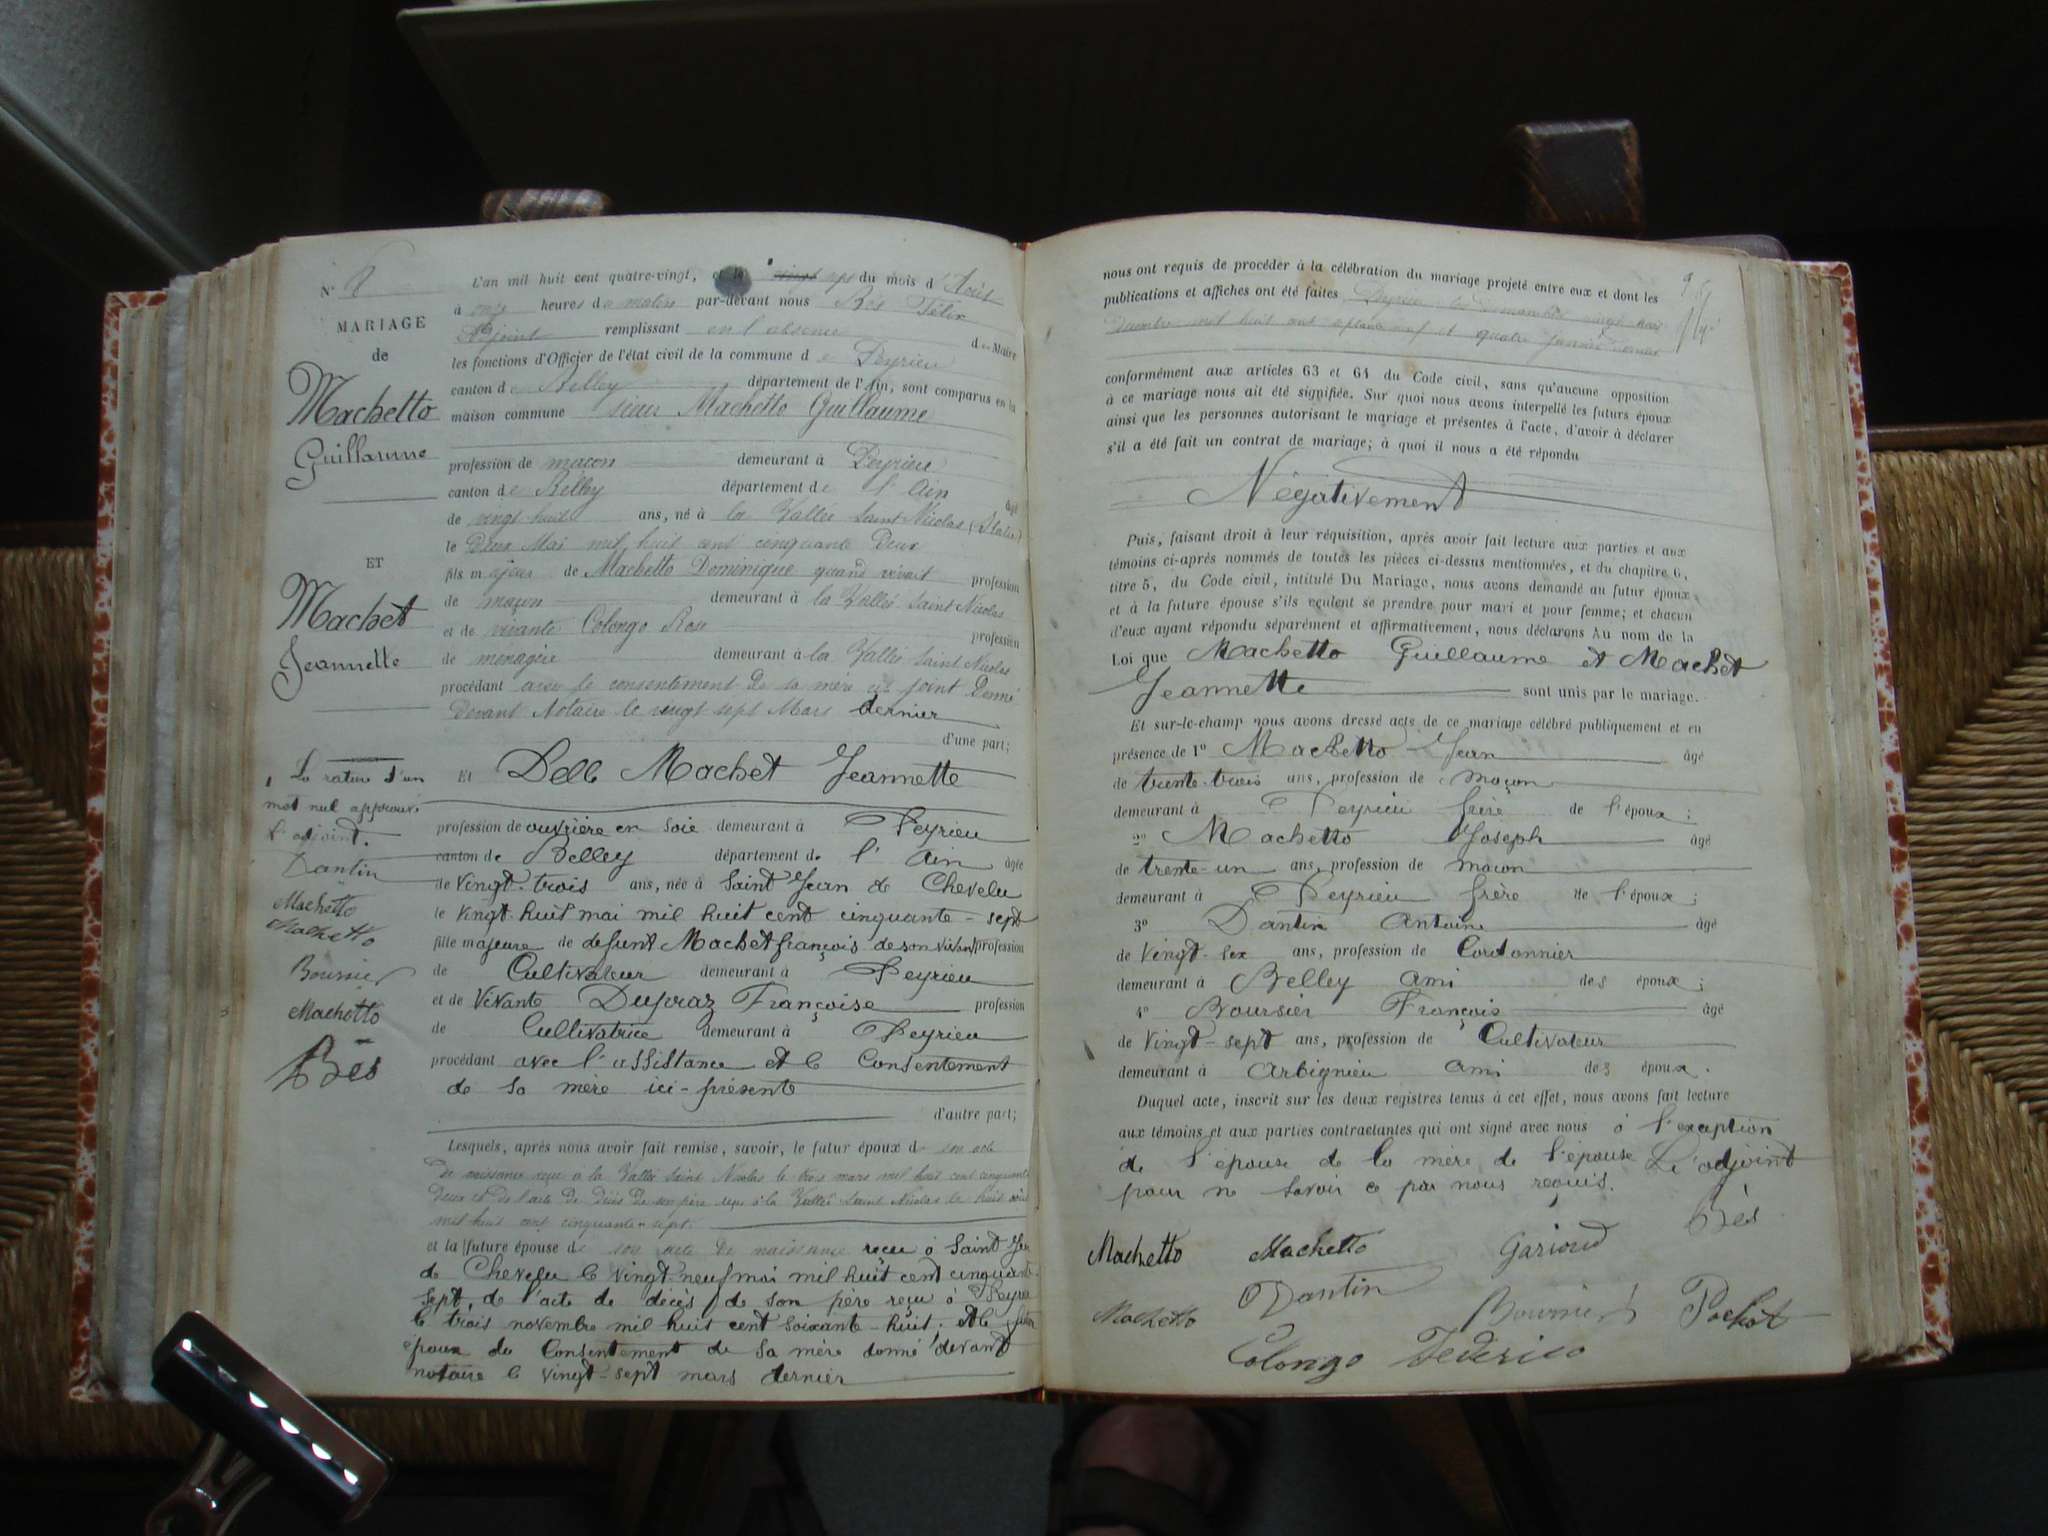 N° 8
MARIAGE
de
Machetto
Guillaume
ET
Machet
Jeannette
La rature d'un
mot nul approuvé
L'adjoint.
Dantin
Machetto
Machetto
Boursier
Machetto
Bès
L'an mil huit cent quatre-vingt, et le vingt sept du mois d'Août
à onze heures du matin par-devant nous Bès Félix
Adjoint remplissant en l'absence du Maire
les fonctions d'Officier de l'état civil de la commune de Peyrieu
canton de Belley département de l'Ain, sont comparus en la
maison commune sieur Machetto Guillaume
profession de maçon demeurant à Peyrieu
canton de Belley département de l'Ain âgé
de vingt huit ans, né à la Vallée Saint Nicolas (Italie)
le Deux Mai mil huit cent cinquante Deux
fils majeur de Machetto Dominique quand vivait profession
de maçon demeurant à la Vallée Saint Nicolas
et de vivante Colongo Rose profession
de menagère demeurant à la Vallée Saint Nicolas
procédant avec le consentement de sa mère ci joint Donné
Devant Notaire le vingt sept Mars dernier
d'une part;
Et Delle Machet Jeannette
profession de ouvrière en soie demeurant à Peyrieu
canton de Belley département de l'Ain âgée
de vingt-trois ans, née à Saint Jean de Chevelu
le vingt-huit mai mil huit cent cinquante-sept
fille majeure de defunt Machet françois de son vivant profession
de Cultivateur demeurant à Peyrieu
et de vivante Dupraz Françoise profession
de Cultivatrice demeurant à Peyrieu
procédant avec l'assistance et le Consentement
de sa mère ici-présente
d'autre part;
Lesquels, après nous avoir fait remise, savoir, le futur époux de son acte
De naissance reçu à la Vallée Saint Nicolas le trois mars mil huit cent cinquante
Deux et de l'acte de décès de son père reçu à la Vallée Saint Nicolas le huit
mil huit cent cinquante-sept.
et la future épouse de son acte de naissance reçu à Saint Jean
de Chevelu le vingt-neuf mai mil huit cent cinquante-
sept, de l'acte de décès de son père reçu à Peyrieu
le trois novembre mil huit cent soixante-huit, et le futur
époux du Consentement de sa mère donné devant
notaire le vingt-sept mars dernier
nous ont requis de procéder à la célébration du mariage projeté entre eux et dont les
publications et affiches ont été faites Peyrieu les dimanches vingt huit
Decembre mil huit cent soixante dix neuf et quatre janvier dernier
conformément aux articles 63 et 64 du Code civil, sans qu'aucune opposition
à ce mariage nous ait été signifiée. Sur quoi nous avons interpellé les futurs époux
ainsi que les personnes autorisant le mariage et présentes à l'acte, d'avoir à déclarer
s'il a été fait un contrat de mariage; à quoi il nous a été répondu
Négativement
Puis, faisant droit à leur réquisition, après avoir fait lecture aux parties et aux
témoins ci-après nommés de toutes les pièces ci-dessus mentionnées, et du chapitre 6,
titre 5, du Code civil, intitulé Du Mariage, nous avons demandé au futur époux
et à la future épouse s'ils veulent se prendre pour mari et pour femme; et chacun
d'eux ayant répondu séparément et affirmativement, nous déclarons Au nom de la
Loi que Machetto Guillaume et Machet
Jeannette sont unis par le mariage.
Et sur-le-champ nous avons dressé acte de ce mariage célébré publiquement et en
présence de 1° Machetto Jean âgé
de trente-trois ans, profession de maçon
demeurant à Peyrieu frère de l'époux;
2° Machetto Joseph âgé
de trente-un ans, profession de maçon
demeurant à Peyrieu frère de l'époux;
3° Dantin Antoine âgé
de vingt-six ans, profession de Cordonnier
demeurant à Belley ami des époux;
4° Boursier François âgé
de vingt-sept ans, profession de Cultivateur
demeurant à Arbignieu ami des époux.
Duquel acte, inscrit sur les deux registres tenus à cet effet, nous avons fait lecture
aux témoins et aux parties contractantes qui ont signé avec nous à l'exception
de l'épouse de la mère de l'épouse L'adjoint
pour ne savoir ce par nous requis.
Bès
Machetto Machetto Gariond
Dantin
Machetto Boursier Pochat
Colongo Federico